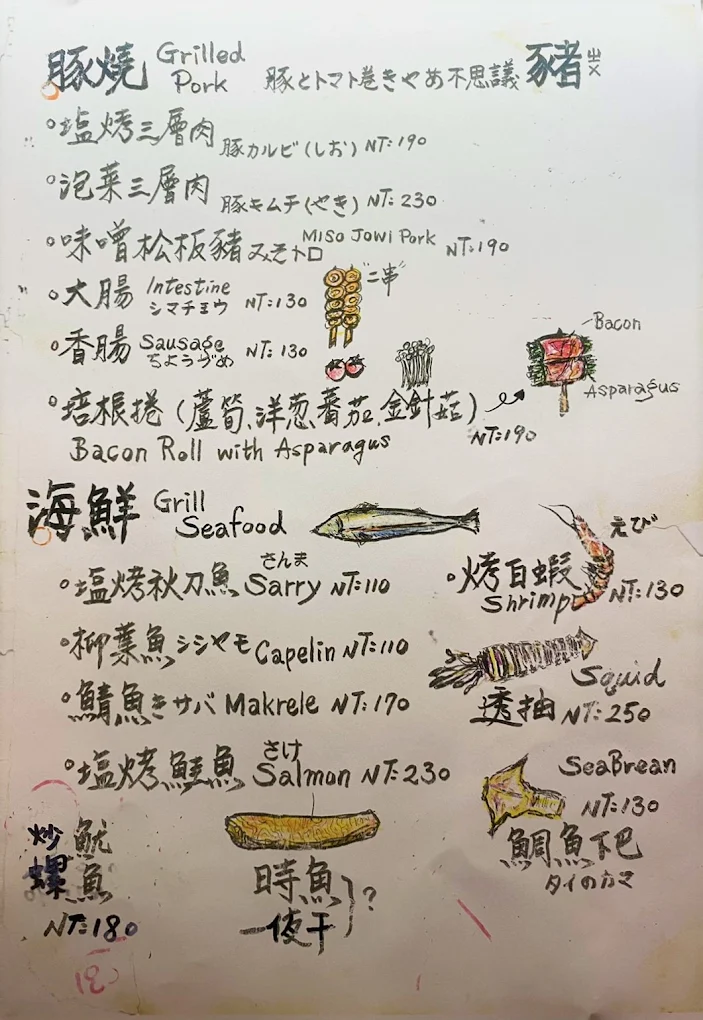 豚燒 Grilled Pork 豚とトマト巻きやめ不思議 豕者 ㄓㄨ
塩烤三層肉 豚カルビ(しお) NT:190
泡菜三層肉 豚キムチ(やき) NT:230
味噌松板豬 みそトロ Miso Jowl Pork NT:190
大腸 Intestine シマチョウ NT:130 "二串"
香腸 Sausage ちょうづめ NT:130
Bacon
Asparagus
培根捲(蘆筍、洋葱、番茄、金針菇)
Bacon Roll with Asparagus NT:190
海鮮 Grill Seafood
塩烤秋刀魚 さんま Sarry NT:110
烤白蝦 えび Shrimp NT:130
柳葉魚 シシャモ Capelin NT:110
鯖魚 きサバ Makrele NT:170
Squid
透抽 NT:250
塩烤鮭魚 さけ Salmon NT:230
SeaBrean
NT:130
鯛魚下巴
タイのカマ
炒螺
魷魚
NT:180
時魚
一夜干 ?